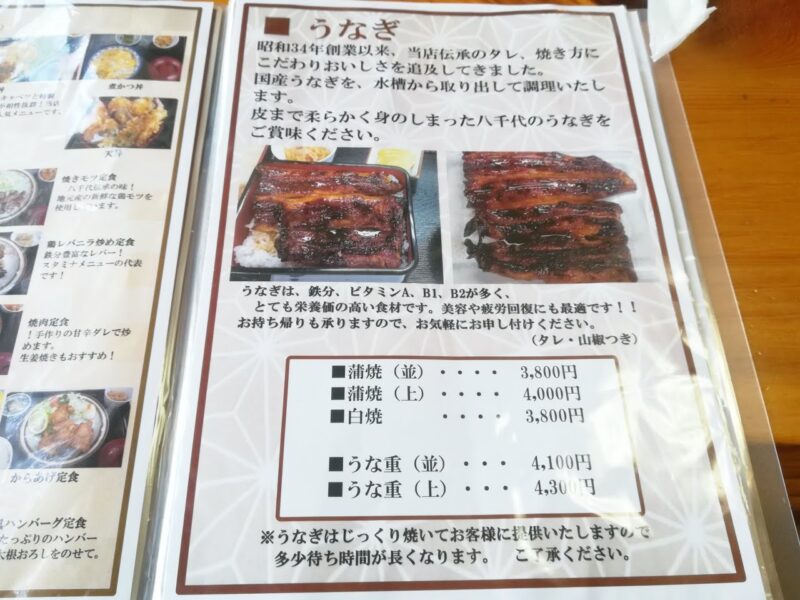 煮かつ丼
天丼
焼きモツ定食
八千代伝承の味！
地元産の新鮮な鶏モツを
使用しています。
鶏レバニラ炒め定食
鉄分豊富なレバー！
スタミナメニューの代表
です！
焼肉定食
！手作りの甘辛ダレで炒
めます。
生姜焼きもおすすめ！
からあげ定食
ハンバーグ定食
たっぷりのハンバー
大根おろしをのせて。
■ うなぎ
昭和34年創業以来、当店伝承のタレ、焼き方に
こだわりおいしさを追及してきました。
国産うなぎを、水槽から取り出して調理いたし
ます。
皮まで柔らかく身のしまった八千代のうなぎを
ご賞味ください。
うなぎは、鉄分、ビタミンA、B1、B2が多く、
とても栄養価の高い食材です。美容や疲労回復にも最適です！！
お持ち帰りも承りますので、お気軽にお申し付けください。
（タレ・山椒つき）
■蒲焼（並）・・・・ 3,800円
■蒲焼（上）・・・・ 4,000円
■白焼 ・・・・ 3,800円
■うな重（並）・・・ 4,100円
■うな重（上）・・・ 4,300円
※うなぎはじっくり焼いてお客様に提供いたしますので
多少待ち時間が長くなります。 ご了承ください。